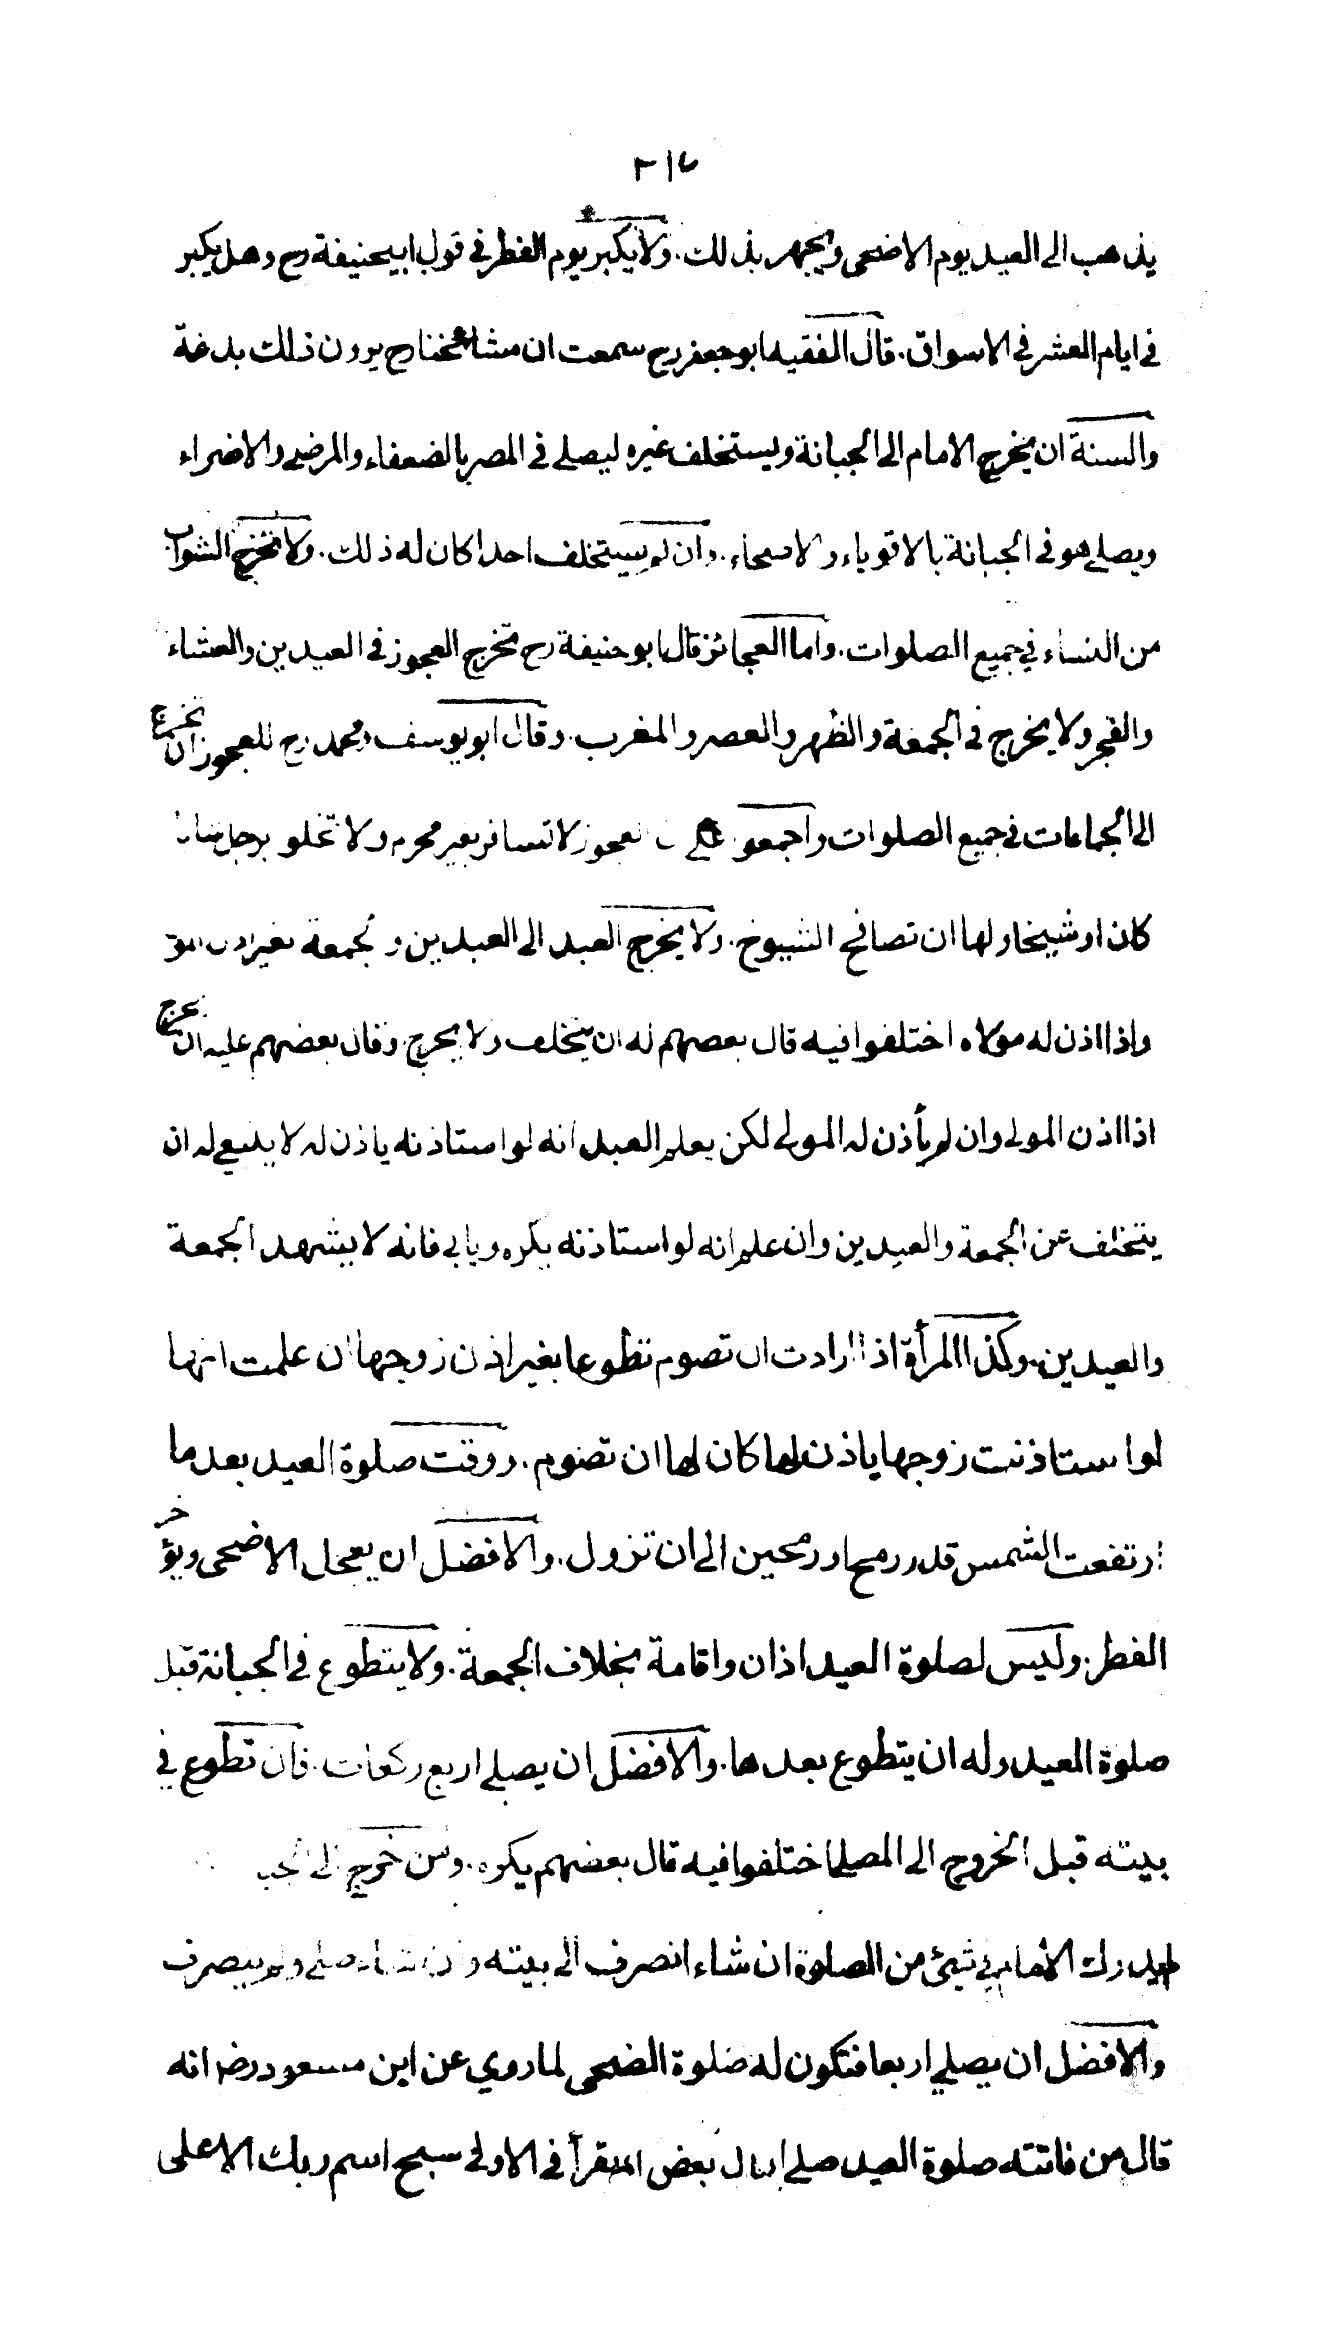 ٢١٧
يذهب الى العيد يوم الاضحى ويجهر بذلك. ولا يكبر يوم الفطر في قول ابيحنيفة رح وهل يكبر
في ايام العشر في الاسواق. قال الفقيه ابو جعفر رح سمعت ان مشائخنا رح يرون ذلك بدعة
والسنة ان يخرج الامام الى الجبانة ويستخلف غيره ليصلي في المصر بالضعفاء والمرضى والاضراء
ويصلي هو في الجبانة بالاقوياء والاصحاء. وان لم يستخلف احدا كان له ذلك. ولا تخرج الشواب
من النساء في جميع الصلوات. واما العجائز قال ابو حنيفة رح تخرج العجوز في العيدين والعشاء
والفجر ولا يخرج في الجمعة والظهر والعصر والمغرب. وقال ابو يوسف ومحمد رح للعجوز ان تخرج
الى الجماعات في جميع الصلوات واجمعو العجوز لا تسافر بغير محرم ولا تخلو برجل شابا
كان او شيخا ولها ان تصافح الشيوخ. ولا يخرج العبد الى العيدين و لجمعة بغير اذن
واذا اذن له مولاه اختلفوا فيه قال بعضهم له ان يتخلف ولا يخرج. وقال بعضهم عليه ان يخرج
اذا اذن المولى وان لم يأذن له المولى لكن يعلم العبد انه لو استاذنه ياذن له لا ينبغي له ان
يتخلف عن الجمعة والعيدين وان علم انه لو استاذنه يكره ويابى فانه لا يشهد الجمعة
والعيدين. وكذا المرأة اذا ارادت ان تصوم تطوعا بغير اذن زوجها ان علمت انها
لو استاذنت زوجها ياذن لها كان لها ان تصوم. ووقت صلوة العيد بعد ما
ارتفعت الشمس قدر رمح او رمحين الى ان تزول. والافضل ان يعجل الاضحى ويؤخر
الفطر. وليس لصلوة العيد اذان واقامة بخلاف الجمعة. ولا يتطوع في الجبانة قبل
صلوة العيد وله ان يتطوع بعدها. والافضل ان يصلي اربع ركعات. فان تطوع في
بيته قبل الخروج الى المصلى اختلفوا فيه قال بعضهم يكره. ومن خرج الى
لم يدرك الامام في شيئ من الصلوة ان شاء انصرف الى بيته وان شاء صلى ولم ينصرف
والافضل ان يصلي اربعا فتكون له صلوة الضحى لما روي عن ابن مسعود رضـ انه
قال من فاتته صلوة العيد صلى يقرأ في الاولى سبح اسم ربك الاعلى